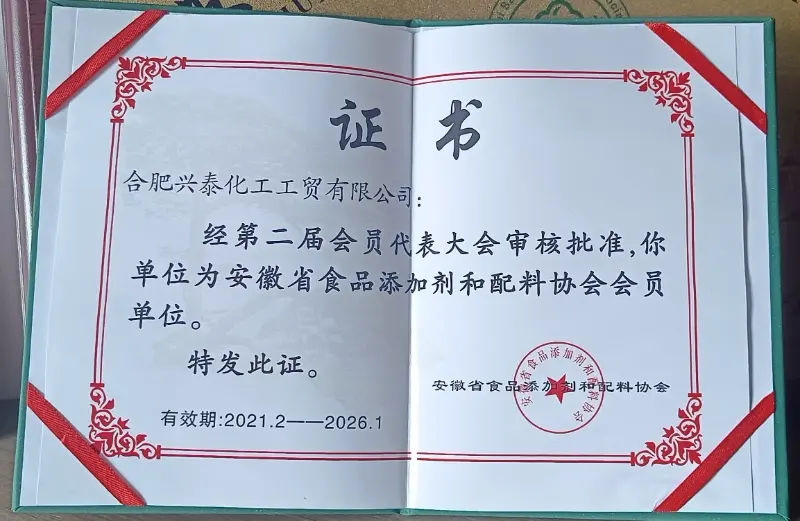 证书
合肥兴泰化工工贸有限公司:
经第二届会员代表大会审核批准,你
单位为安徽省食品添加剂和配料协会会员
单位。
特发此证。
安徽省食品添加剂和配料协会
安徽省食品添加剂和配料协会
有效期:2021.2——2026.1